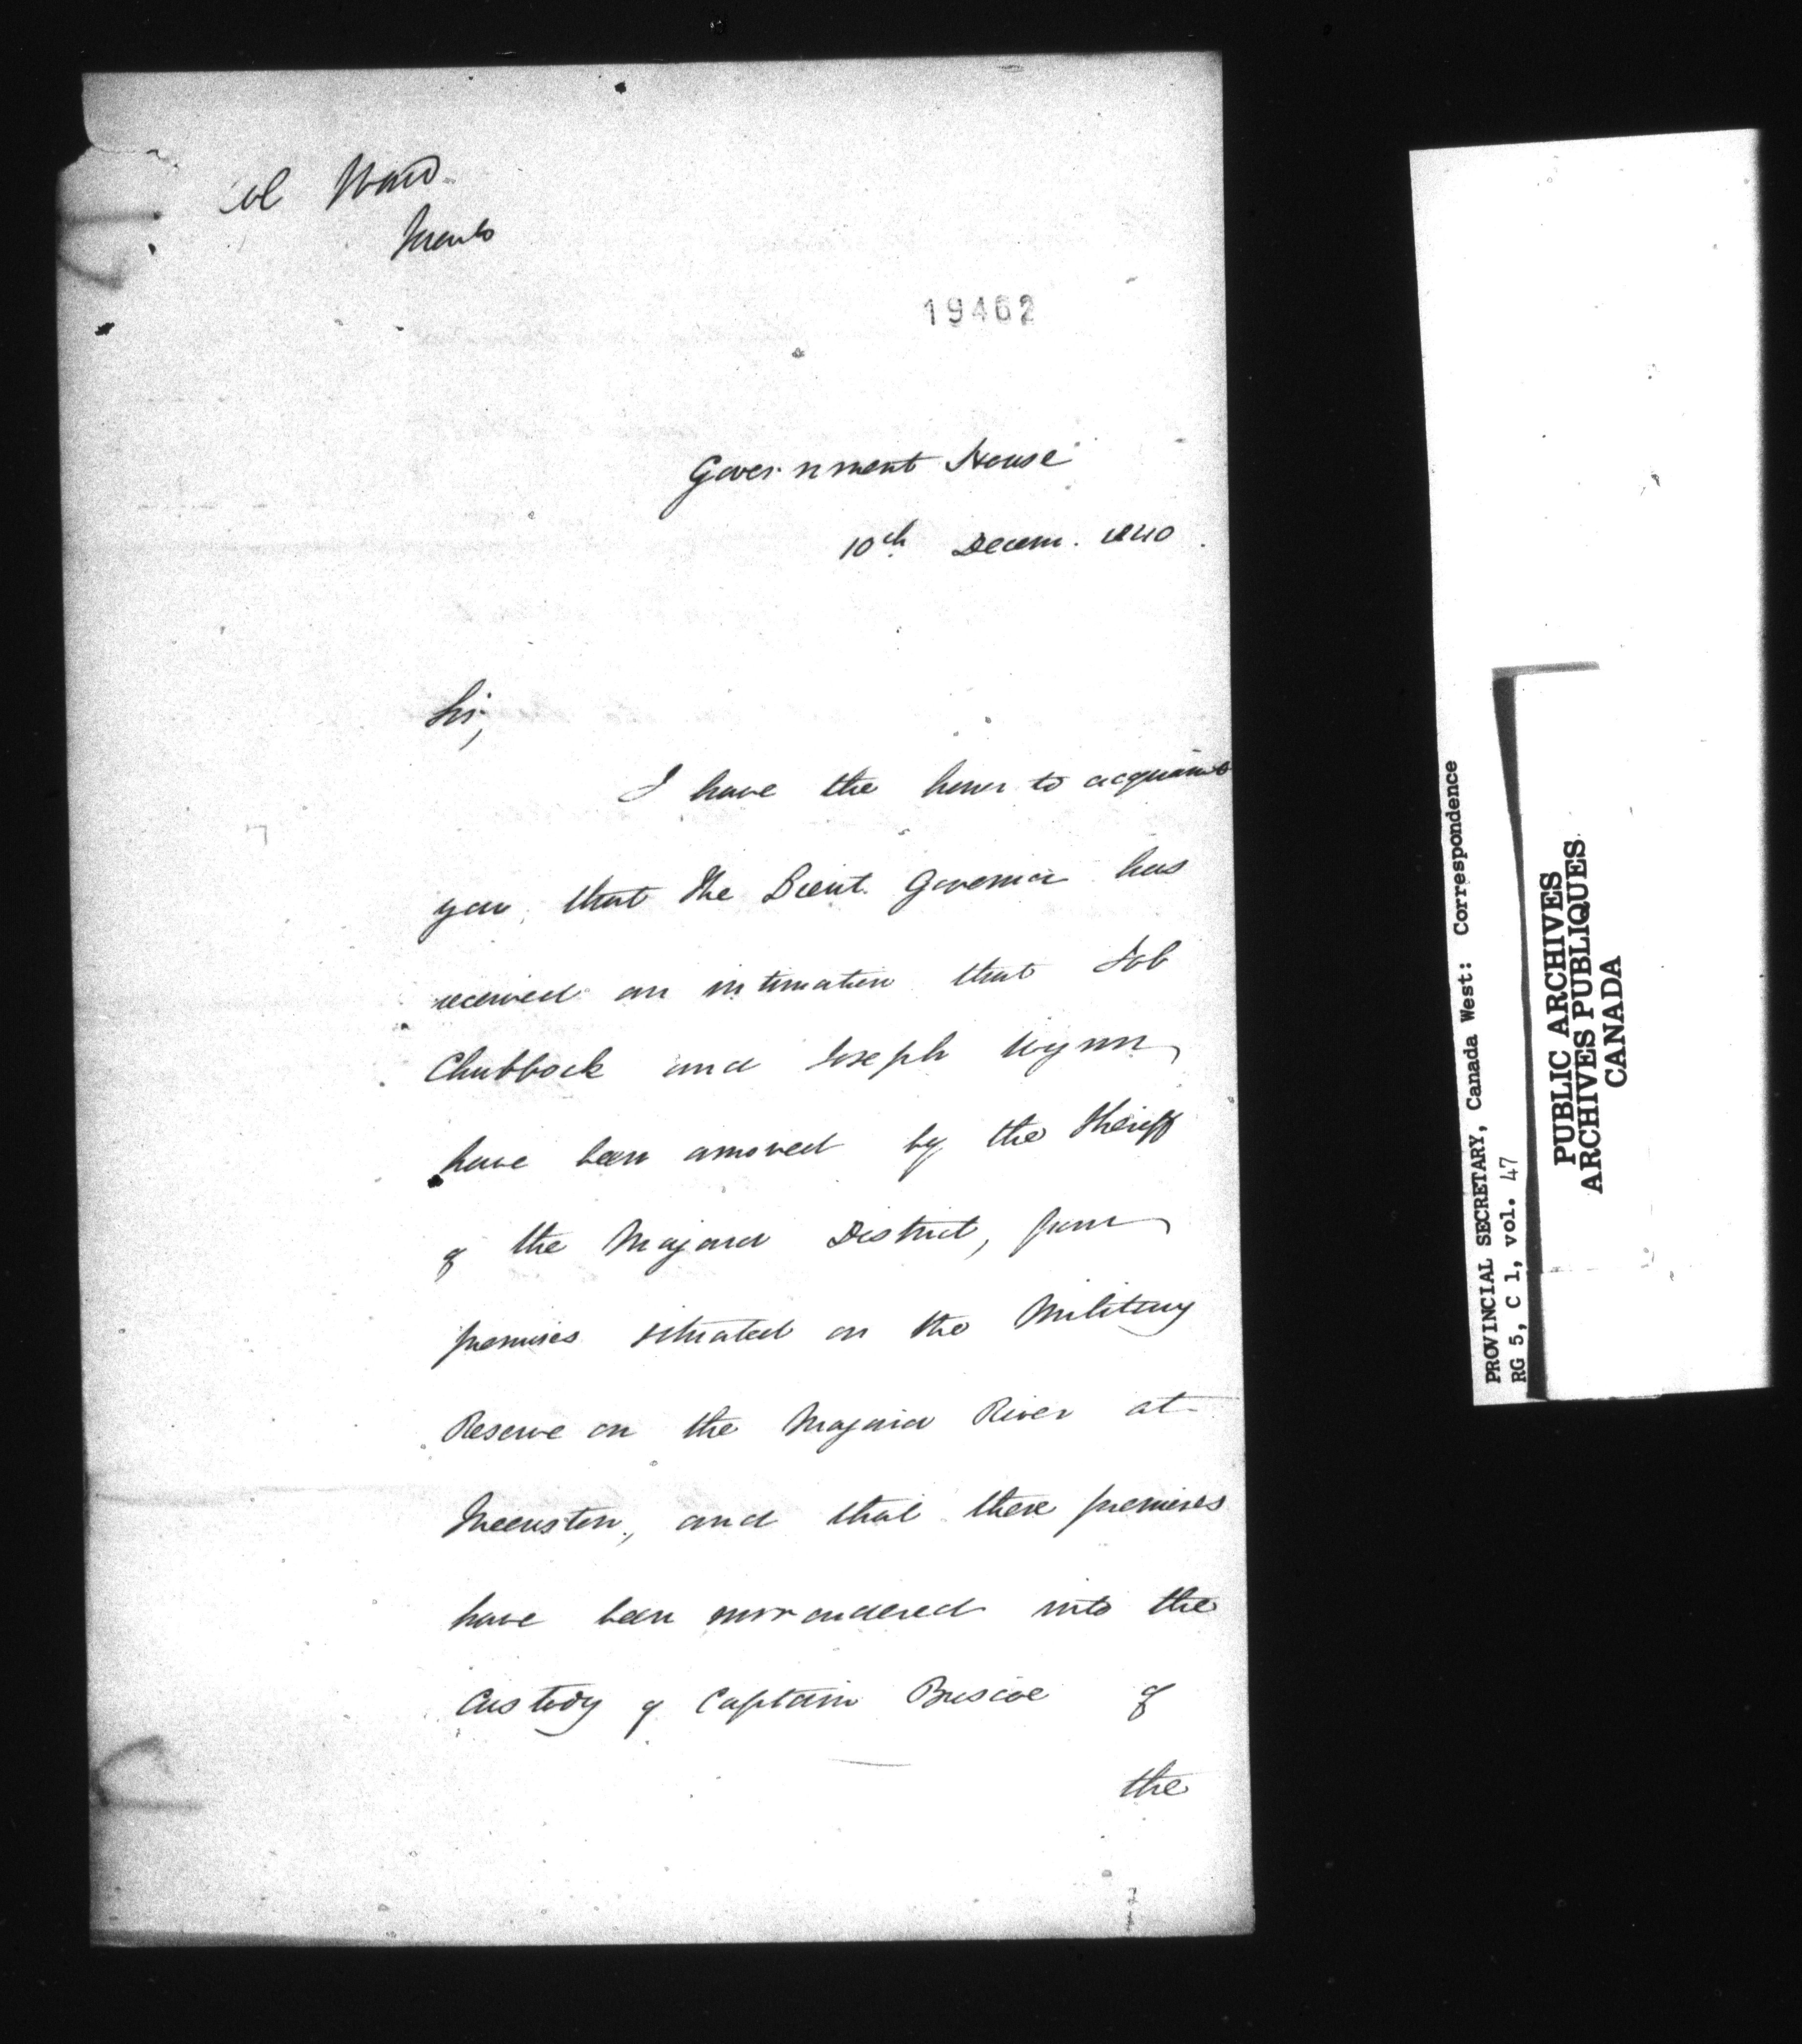 Col Ward
Toronto
19462
Government House
10th Decem. 1840.
Sir,
I have the honor to acquaint
you, that the Lieut. Governor has
received an intimation that Job
Chubbock and Joseph Wynn
have been amoved by the Sheriff
of the Niagara District, from
premises situated on the Military
Reserve on the Niagara River at
Queenston, and that these premises
have been surrendered into the
Custody of Captain Biscoe of
the
PROVINCIAL SECRETARY, Canada West: Correspondence
RG 5, C 1, vol. 47
PUBLIC ARCHIVES
ARCHIVES PUBLIQUES
CANADA